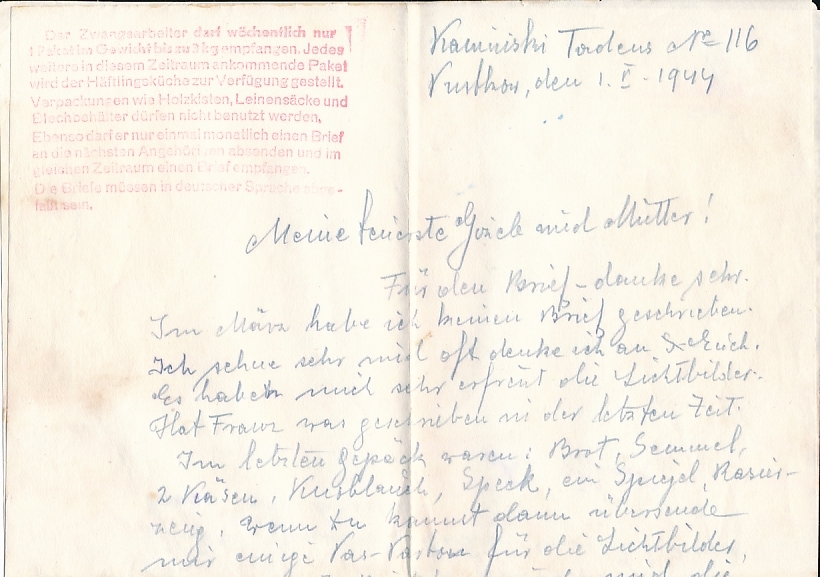 Der Zwangsarbeiter darf wöchentlich nur
1 Paket im Gewicht bis zu 3 kg empfangen. Jedes
weitere in diesem Zeitraum ankommende Paket
wird der Häftlingsküche zur Verfügung gestellt.
Verpackungen wie Holzkisten, Leinensäcke und
Blechbehälter dürfen nicht benutzt werden.
Ebenso darf er nur einmal monatlich einen Brief
an die nächsten Angehörigen absenden und im
gleichen Zeitraum einen Brief empfangen.
Die Briefe müssen in deutscher Sprache abge-
faßt sein.
Kamiński Tadeus No 116
Pustkow, den 1. V. 1944
Meine teuerste und Mutter!
Für den Brief - danke sehr.
Im März habe ich keinen Brief geschrieben.
Ich sehne sehr und oft denke ich an Euch.
Es haben mich sehr erfreut die Lichtbilder.
Hat Franz was geschrieben in der letzten Zeit.
Im letzten Gepäck waren: Brot, Semmel,
2 Käsen, Knoblauch, Speck, ein Spiegel, Rasier-
zeug, wenn Du kannst dann übersende
mir einige für die Lichtbilder,
und die